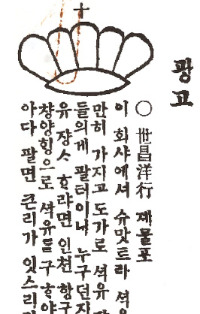 광고
○ 世昌洋行 제물포
이 회샤에셔 슈맛트라 셕
만히 가지고 도가로 셕유
들의게 팔터이니 누구던지
유 쟝ᄉᆞ ᄒᆞ라면 인쳔 항구
챵양힝으로 셕유를 구ᄒᆞ야
아다 팔면 큰리가 잇스리